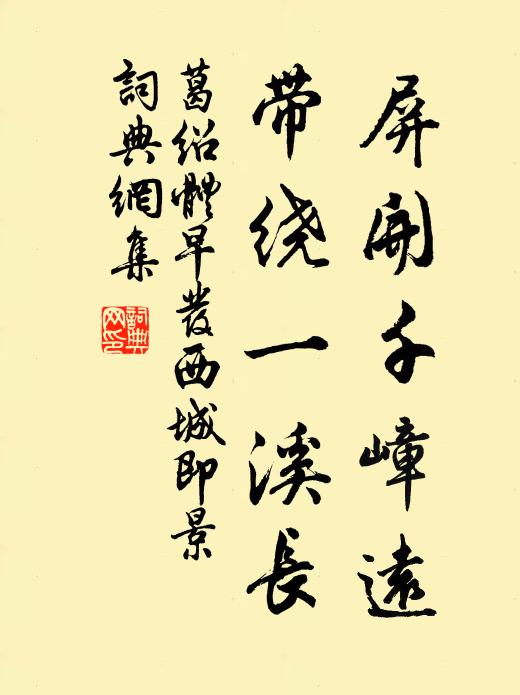 屏開千嶂遠
带绕一溪長
葛绍體早發西城即景
詞典網集
詞典
网印